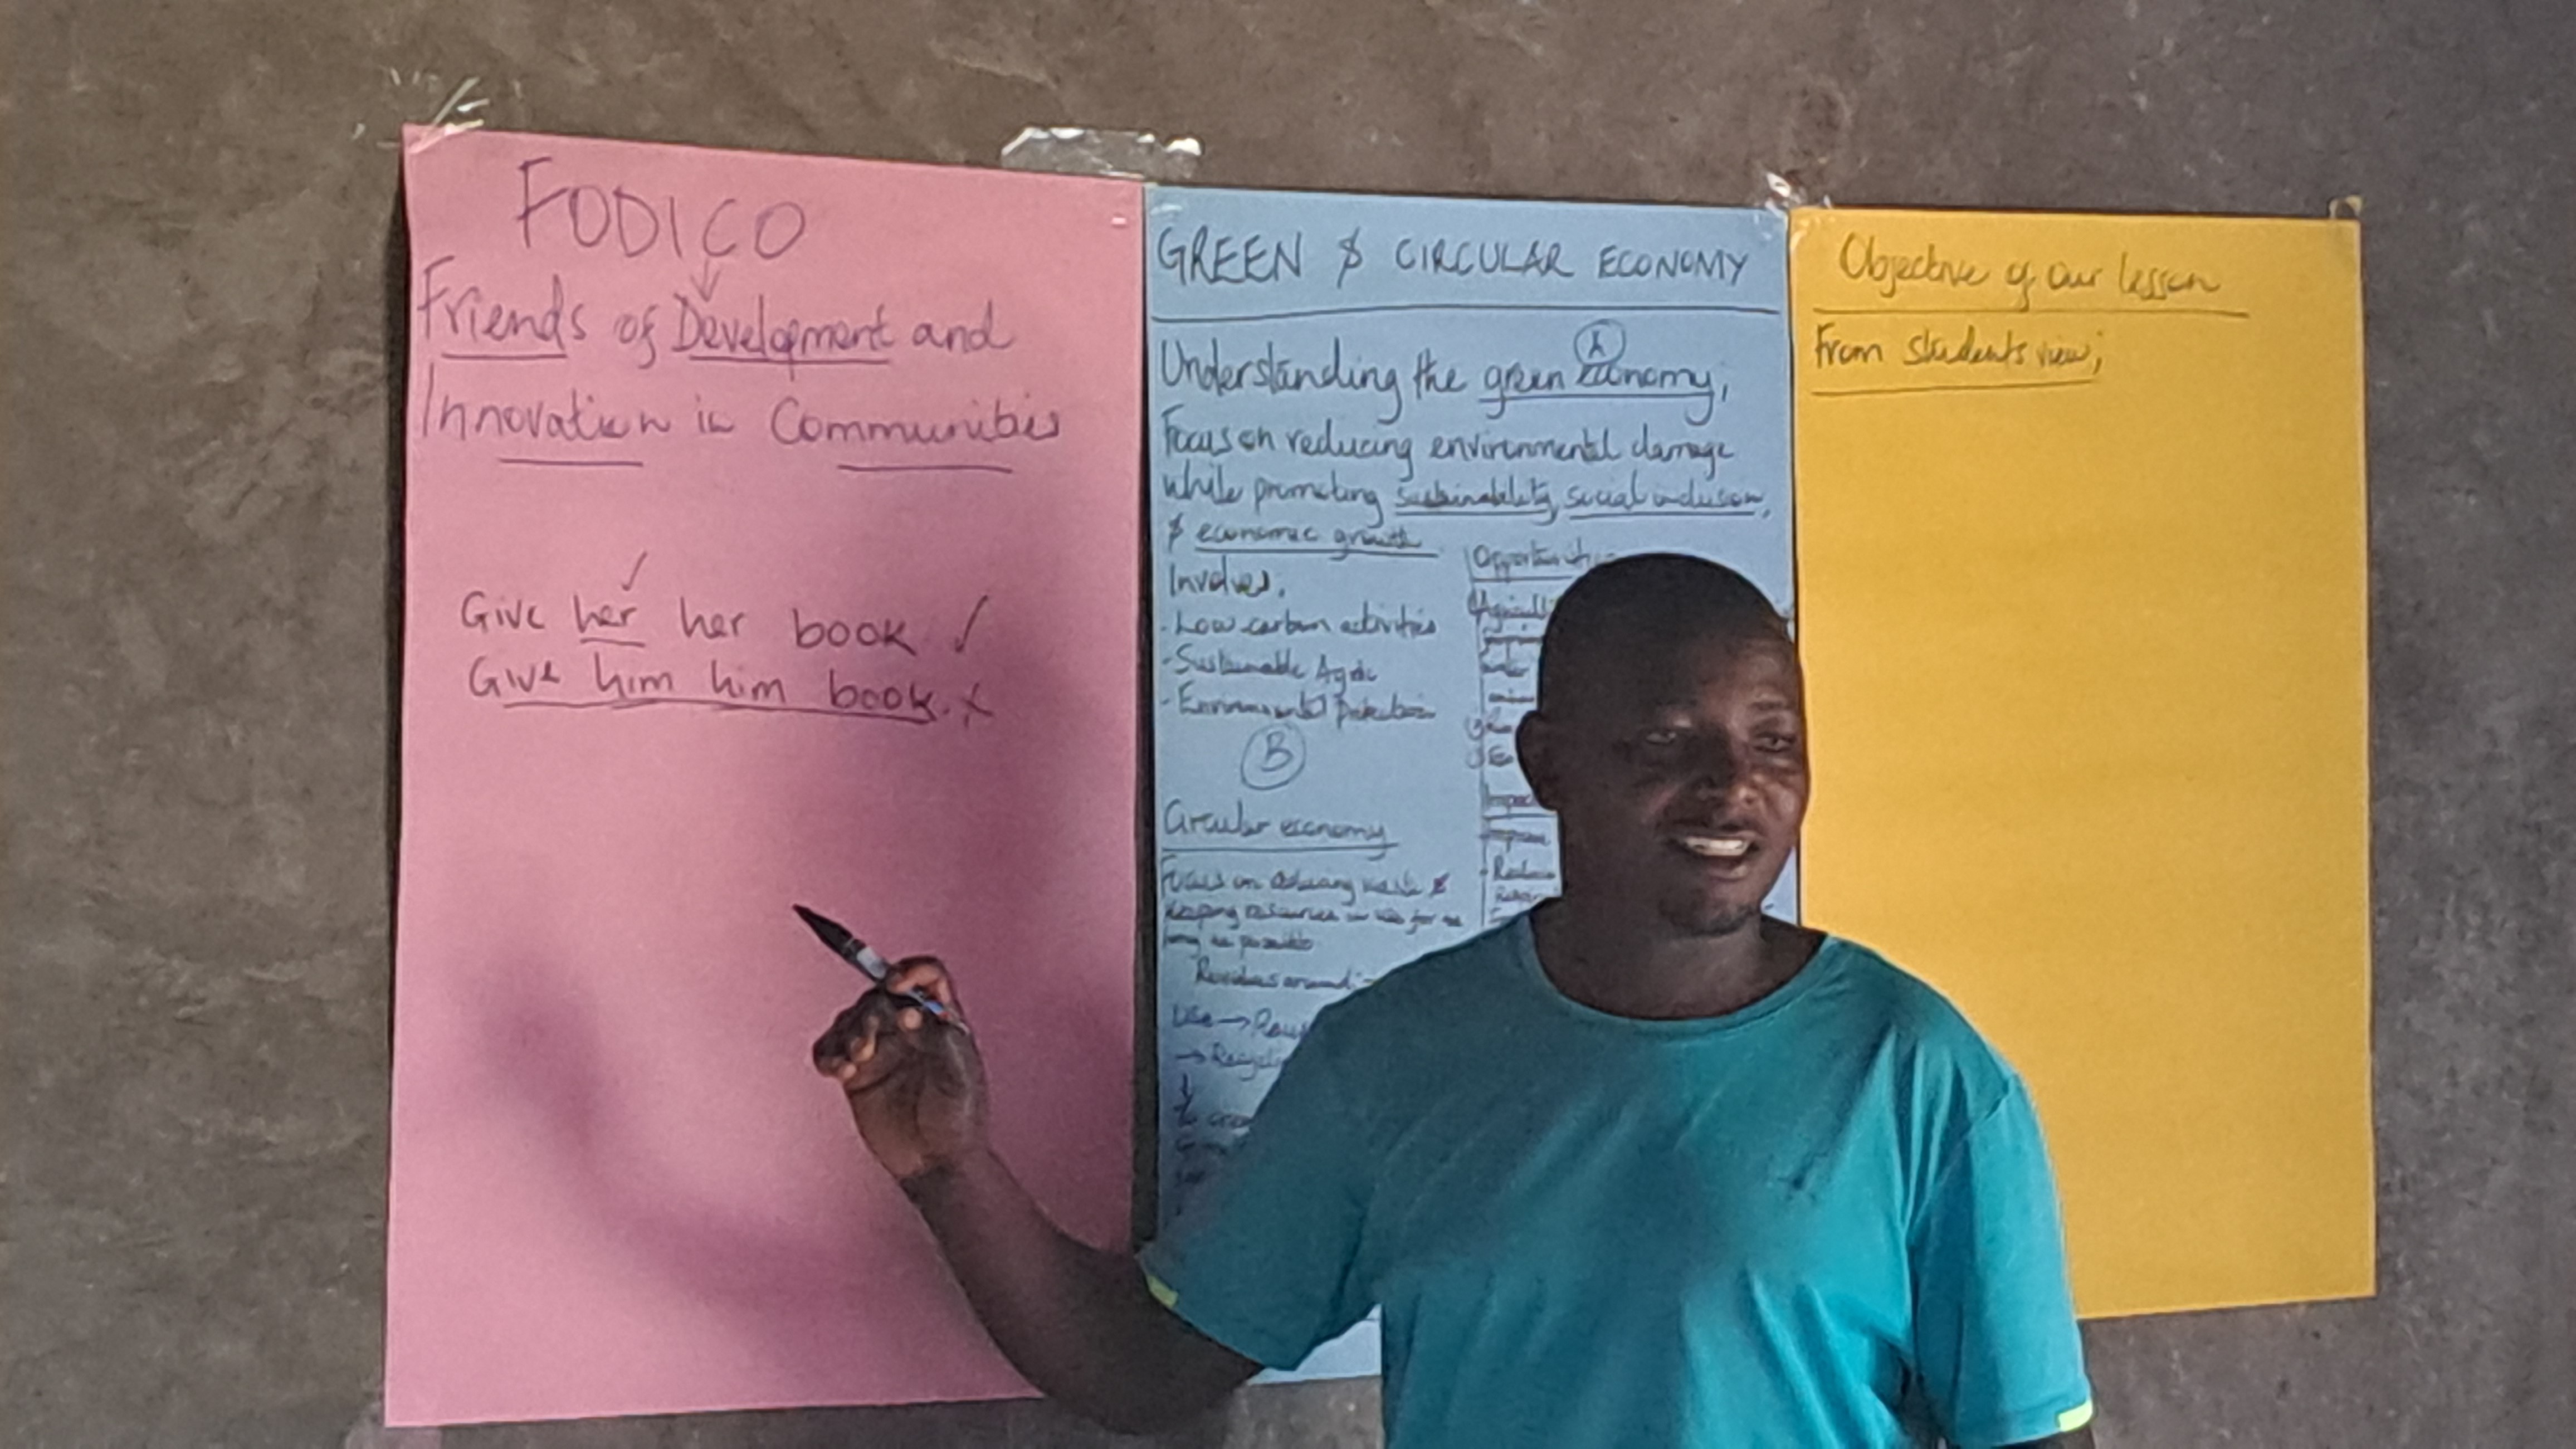 FODICO
Friends of Development and
Innovation in Communities
Give her her book ✓
Give him him book. x
GREEN & CIRCULAR ECONOMY
A
Understanding the green economy;
Focus on reducing environmental damage
while promoting sustainability, social inclusion,
& economic growth
Involves.
- Low carbon activities
- Sustainable Agric
- Environmental Protection
B
Circular economy
Focus on reducing waste &
keeping resources in use for as
long as possible
Revolves around:-
Use →
→
to
Objective of our lesson
From students view;